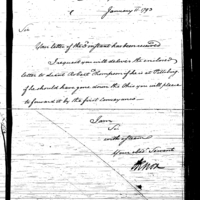 January 11 1793
Sir
Your letter of the 5 instant has been received
I request you will deliver the enclosed
letter to Lieut Robert Thompson if he is at Pittsburg
if he should have gone down the Ohio you will please
to forward it by the first conveyance.
I am
Sir
with esteem
Your Hbl Servant
HKnox